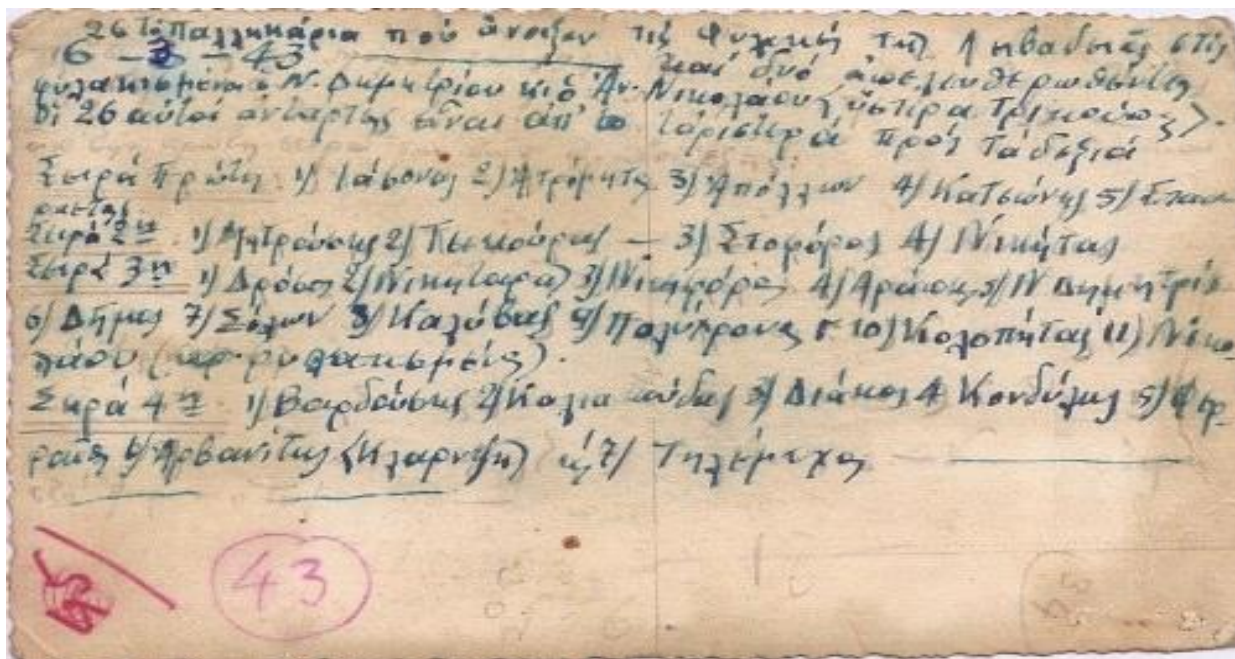 26 τά Παλληκάρια πού ἄνοιξαν τίς Φυλακές τῆς Ληβαδειᾶς στίς
6 - 3 - 43 καί δυό ἀπελευθερωθέντες
φυλακισμένοι Ν. Δημητρίου κι ὁ Ἀν. Νικολάου ὕστερα
Οἱ 26 αὐτοί ἀντάρτες εἶναι ἀπ' τ' ἀριστερά πρός τά δεξιά
Σειρά Πρώτη 1) Ἰάσονας 2) Ἀτρόμητος 3) Ἀπόλλων 4) Κατσώνης 5)
Σειρά 2η 1) Μητρούσης 2) 3) 4) Νικήτας
Σειρά 3η 1) Δρόσος 2) Νικηταράς 3) Νικηφόρος 4) 5) Ν Δημητρίου
6) Δῆμος 7) Σόλων 8) Καλύβας 9) Πολύχρονος 10) Κολοπήτας 11) Νικο-
λάου
Σειρά 4η 1) Βαρδούσης 2) Καλιακούδας 3) Διάκος 4 Κονδύλης 5) Φερ-
ραῖος 6) Ἀρβανίτης 7) Τηλέμαχος
43